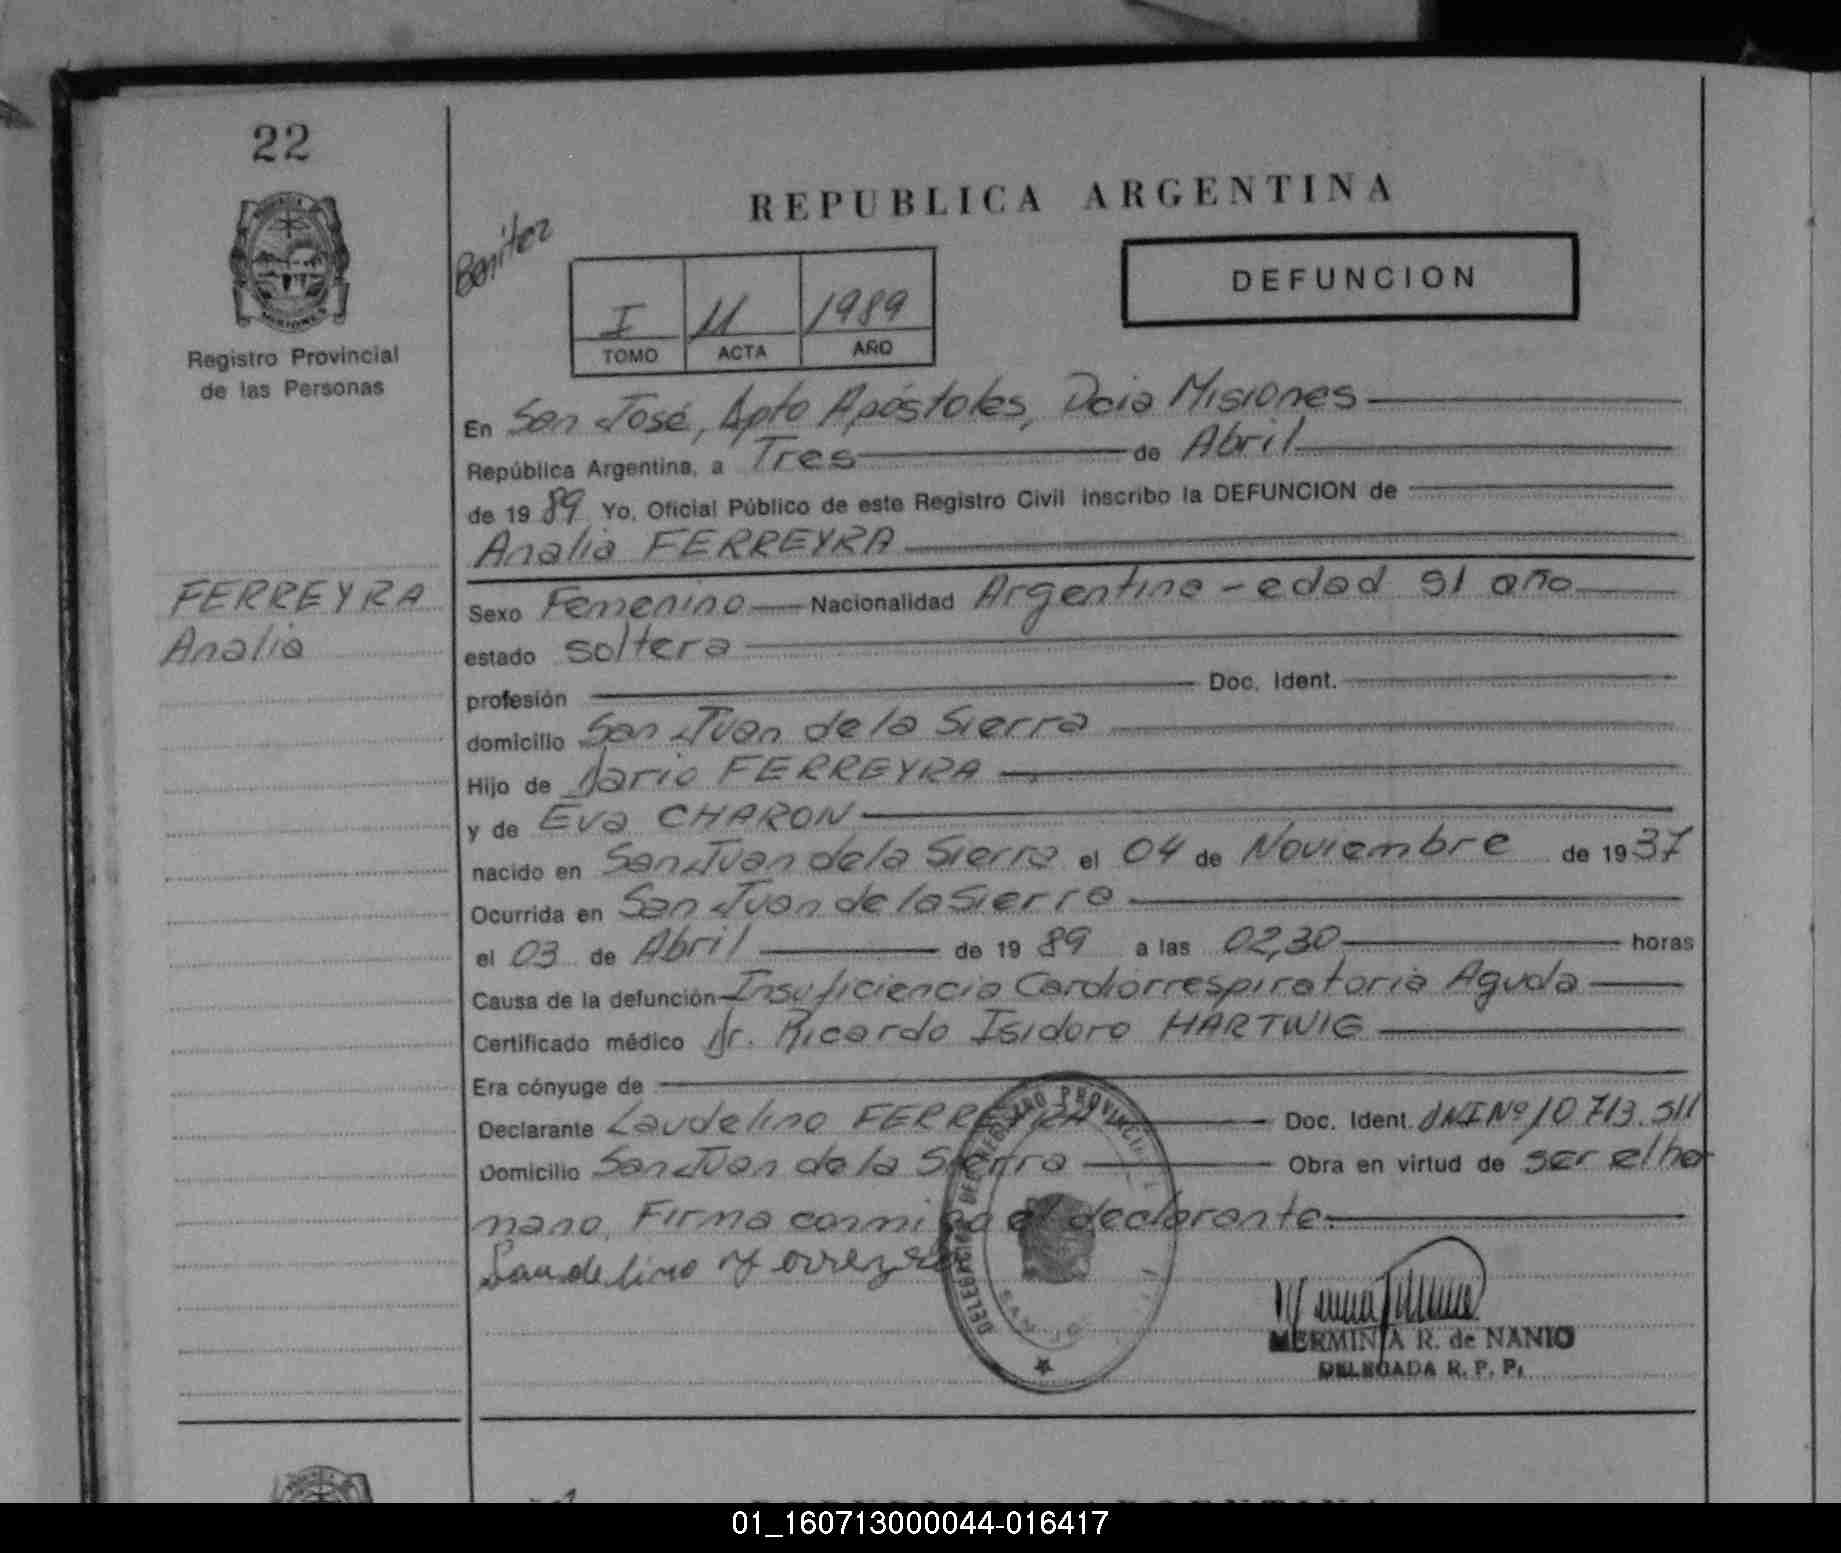 22
MISIONES
Registro Provincial
de las Personas
FERREYRA
Analia
Benitez
REPUBLICA ARGENTINA
I 11 1989
TOMO ACTA AÑO
DEFUNCION
En San José, Dpto Apóstoles, Pcia Misiones
República Argentina, a Tres de Abril
de 19 89 Yo, Oficial Público de este Registro Civil inscribo la DEFUNCION de
Analia FERREYRA
Sexo Femenino Nacionalidad Argentina - edad 51 año
estado soltera
profesión Doc. Ident.
domicilio San Juan de la Sierra
Hijo de Dario FERREYRA
y de Eva CHARON
nacido en San Juan de la Sierra el 04 de Noviembre de 19 37
Ocurrida en San Juan de la Sierra
el 03 de Abril de 19 89 a las 02,30 horas
Causa de la defunción Insuficiencia Cardiorrespiratoria Aguda
Certificado médico Dr. Ricardo Isidoro HARTWIG
Era cónyuge de
Declarante Laudelino FERREYRA Doc. Ident. DNI Nº 10.713.511
Domicilio San Juan de la Sierra Obra en virtud de ser el her
mano, Firma conmigo el declarante.
Laudelino Ferreyra
HERMINIA R. de NANIO
DELEGADA R. P. P.
01_160713000044-016417